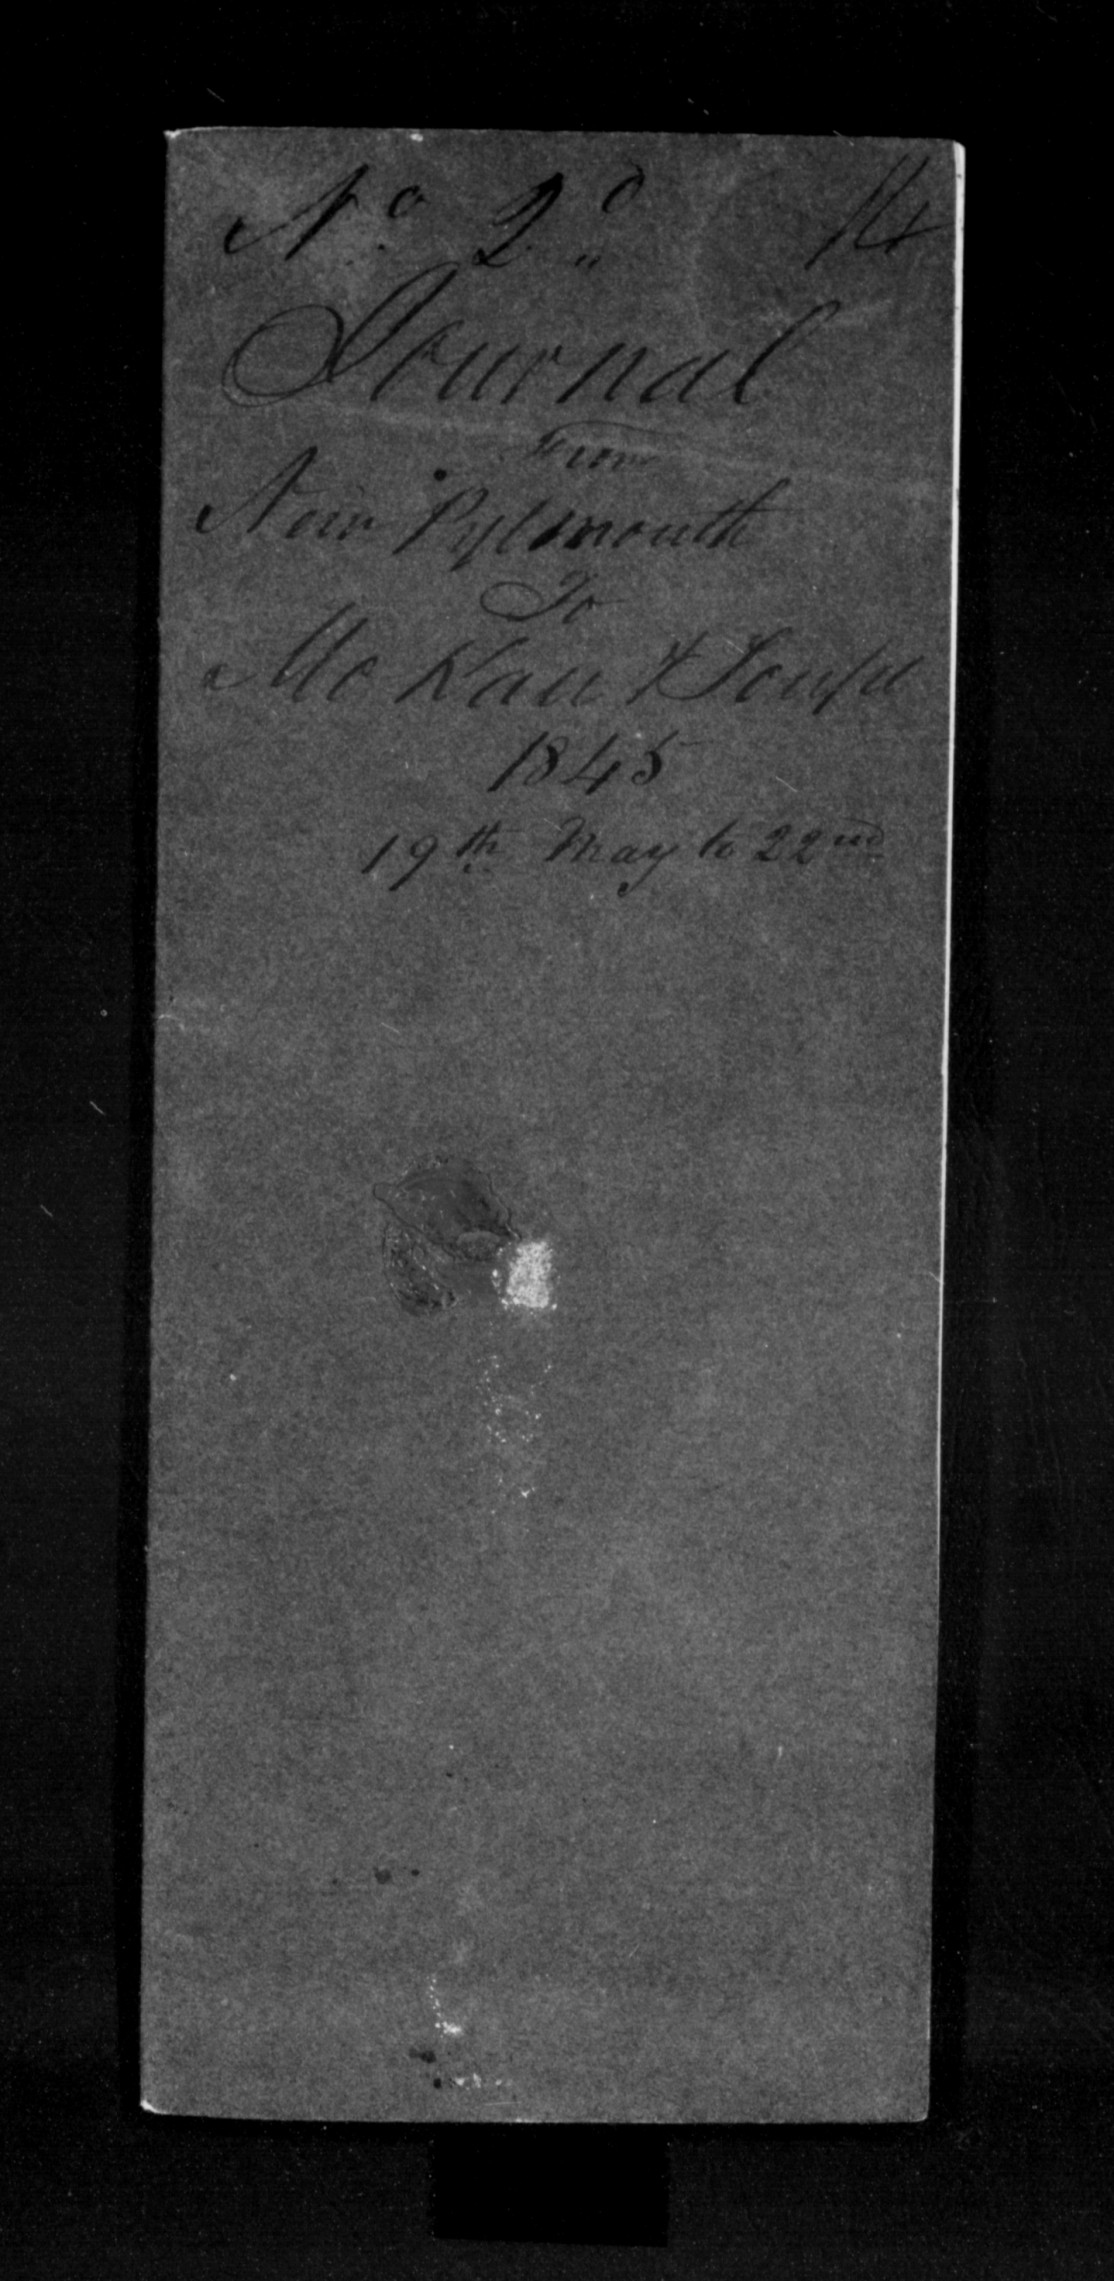 No 2d 14
Journal
From
New Pylmouth
To
Mokau &
1845
19th May to 22nd